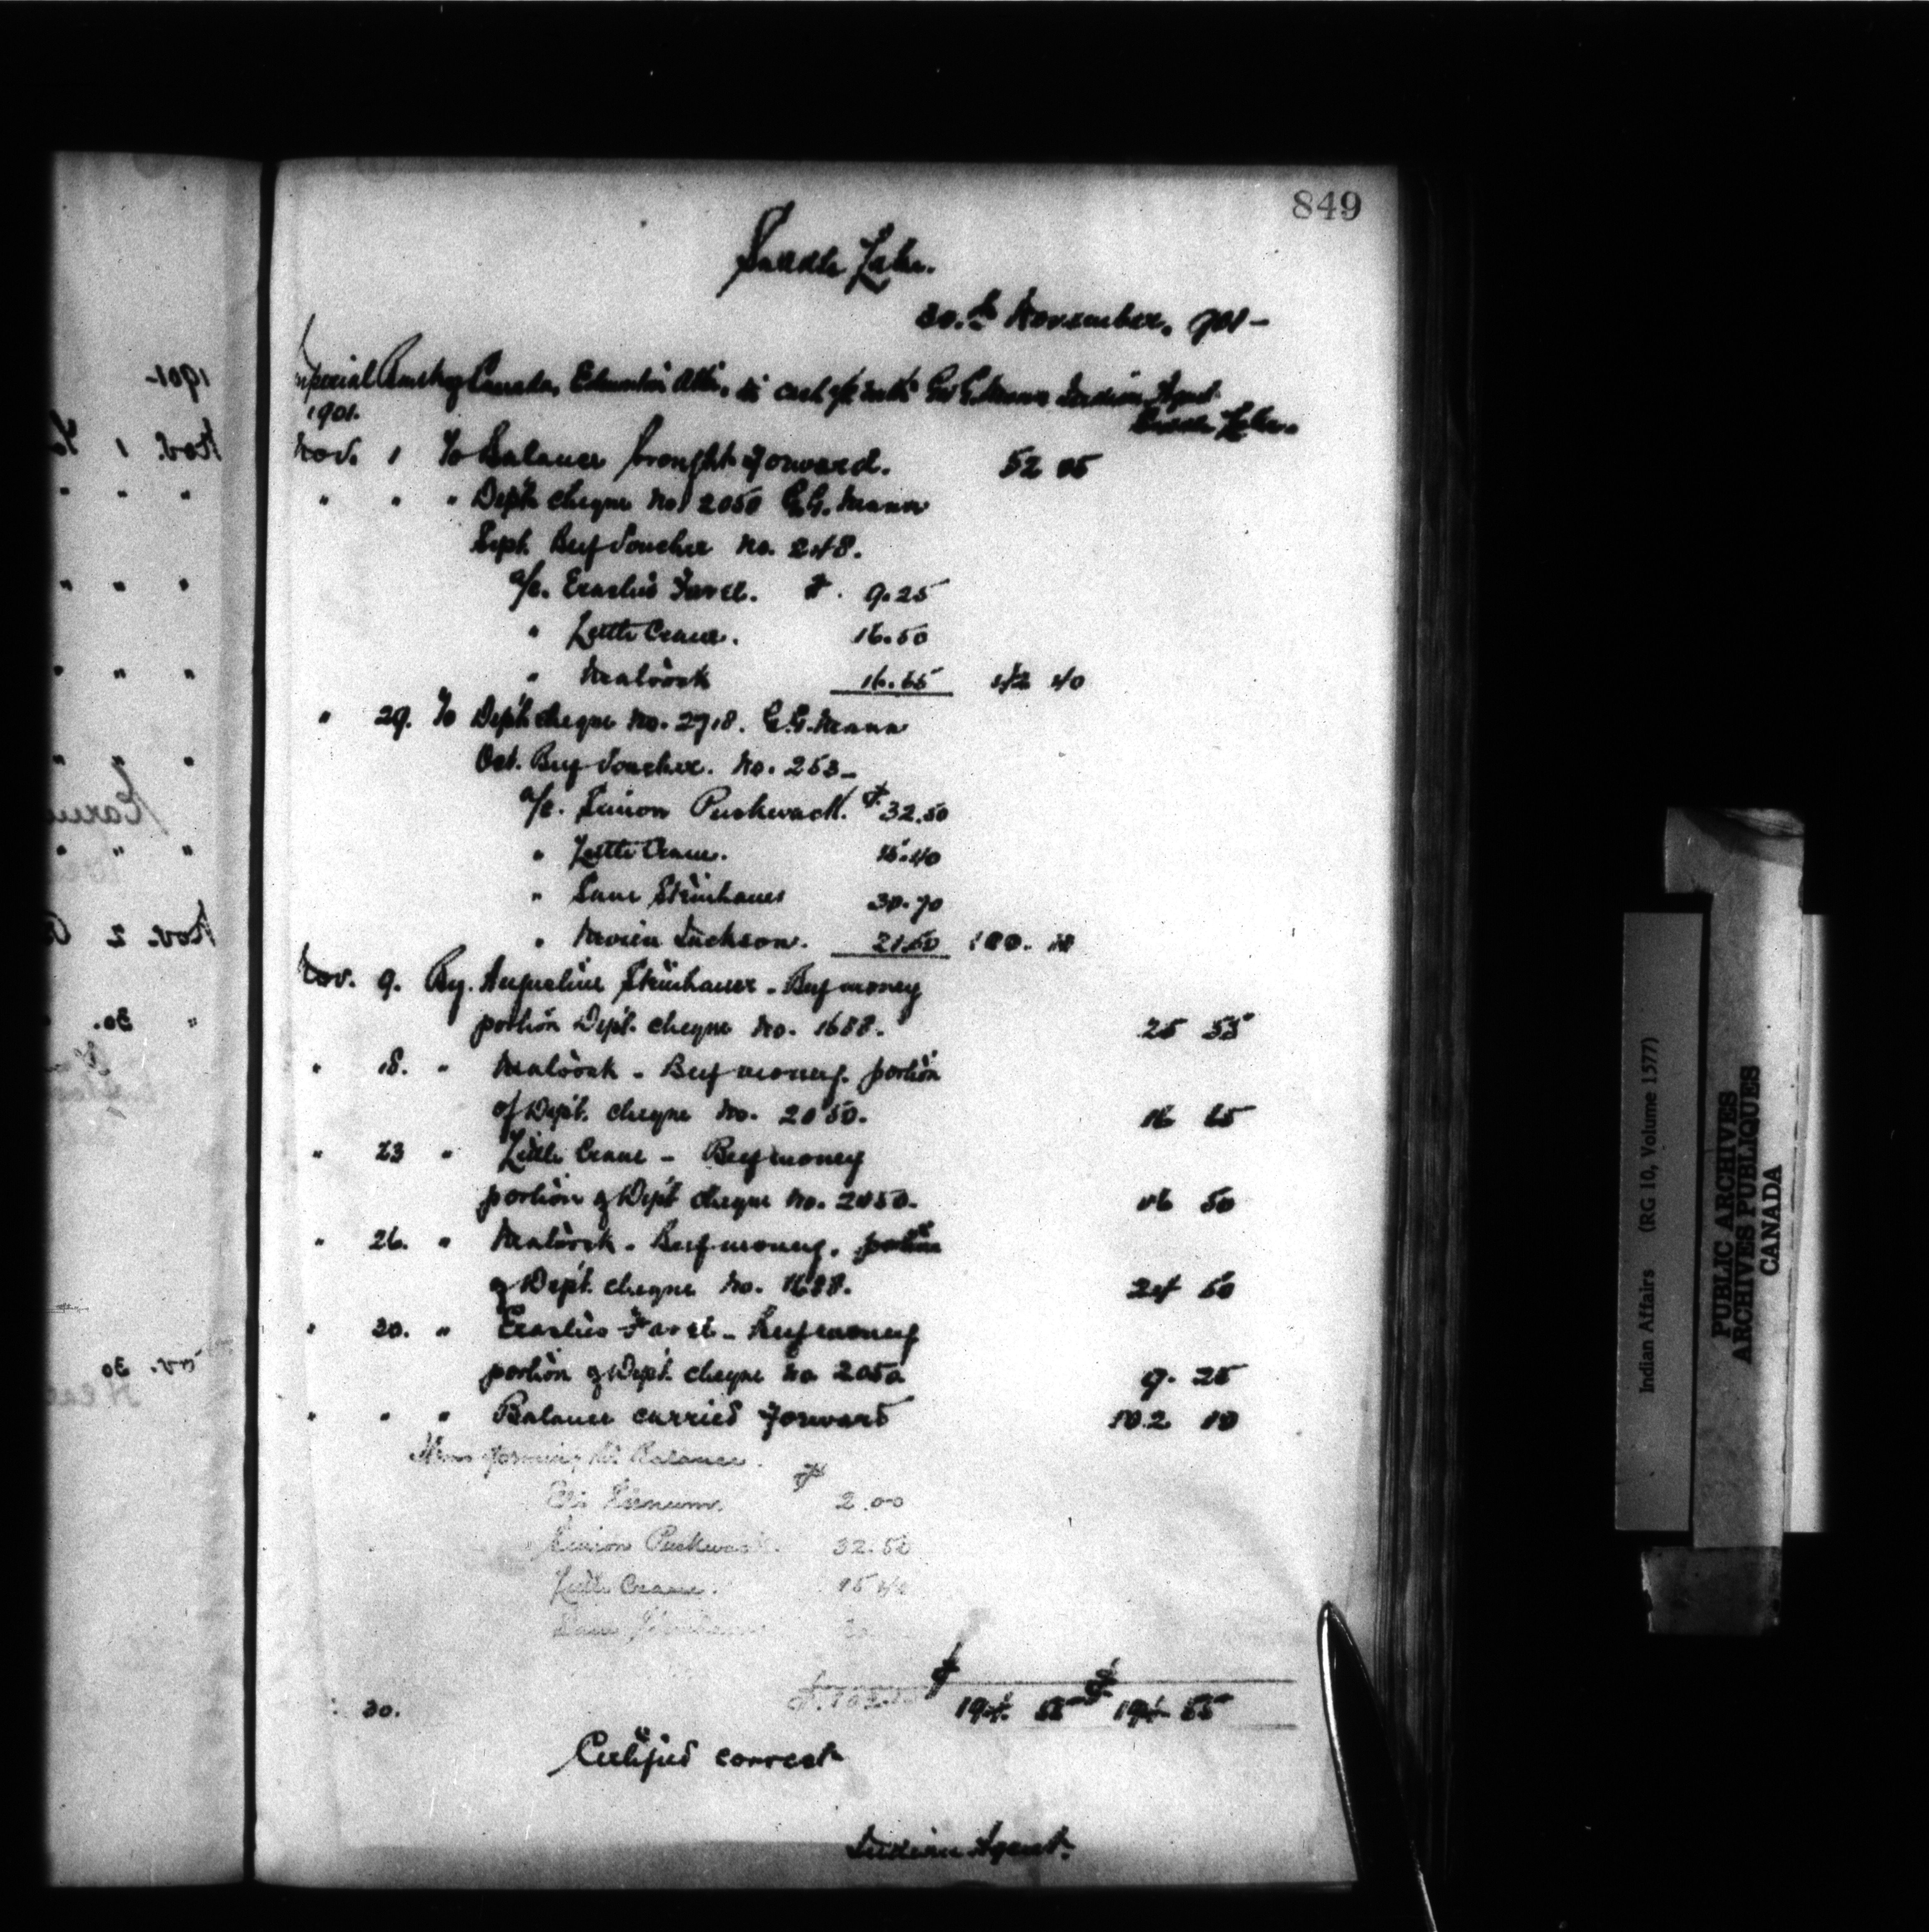 849
Saddle Lake.
30.th November, 901-
Imperial Bank of Canada, Edmonton Alta, in cash a/c with G. G. Mann Indian Agent
Saddle Lake.
1901.
Nov. 1 To Balance brought forward. 52 05
" " " Dept. cheque No. 2050 G.G. Mann
Sept. Beef Voucher No. 248.
a/c. Erastus Favel. $ . 9.25
" Little Crane. 16.50
" Malvork 16.65 42 40
" 29. To Dept. cheque No. 2718. G.G. Mann
Oct. Beef Voucher. No. 253-
a/c. Simon Puskwack. $ 32.50
" Little Crane. 15.40
" Sam Steinhauer 30.70
" Jackson. 21.50 100. 10
Nov. 9. By. Steinhauer - Beef money
portion Dept. cheque No. 1688. 25 55
" 18. " Malvork - Beef money. portion
of Dept. cheque No. 2050. 16 65
" 23 " Little Crane - Beef money
portion of Dept. cheque No. 2050. 16 50
" 26. " Malvork - Beef money. portion
of Dept. cheque No. 1688. 24 50
" 30. " Erastus Favel - Beef money
portion of Dept. cheque No 2050 9. 25
" " " Balance carried forward 102 10
Items forming the Balance.
$ 2.00
Simon Puskwack. 32.50
Little Crane. 15 40
Sam Steinhauer 30
30. $.102.10 $ 194. 55 $ 194 55
Certified correct
Indian Agent.
Indian Affairs (RG 10, Volume 1577)
PUBLIC ARCHIVES
ARCHIVES PUBLIQUES
CANADA